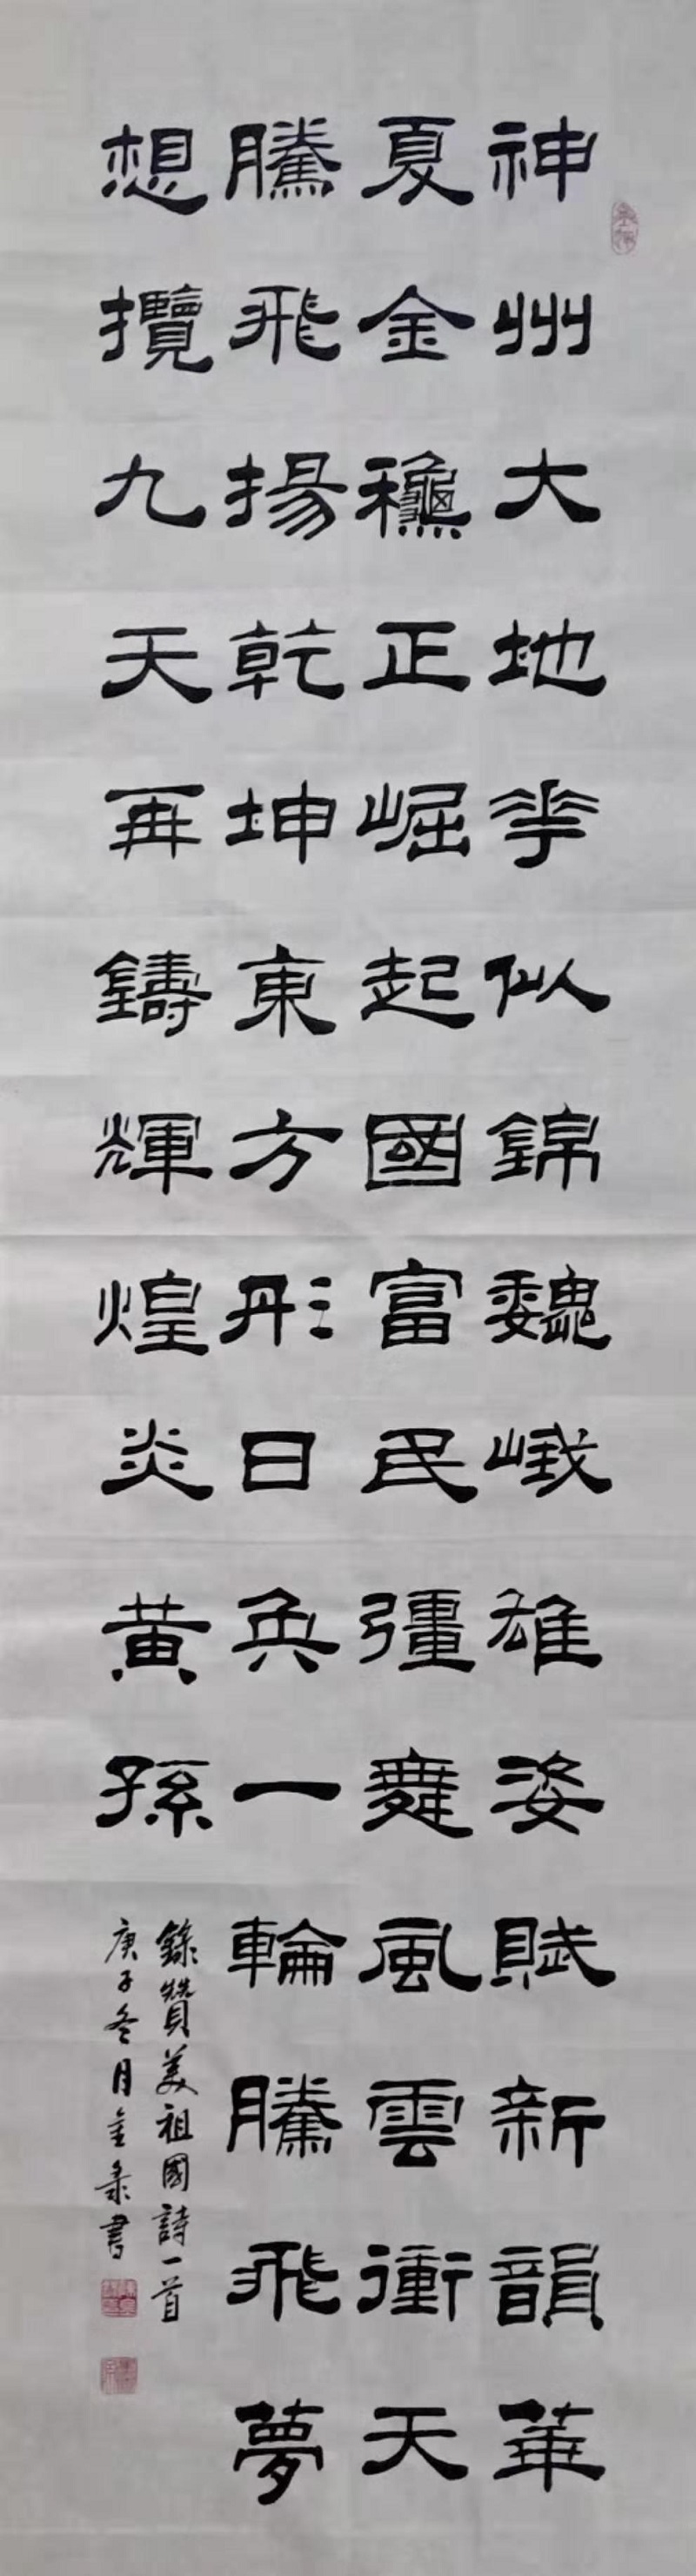 神州大地花似錦魏峨雄姿賦新韻華
夏金龝正崛起國富民彊舞風雲衝天
騰飛揚乾坤東方彤日奐一輪騰飛夢
想攬九天再鑄輝煌炎黄孫
錄贊美祖國詩一首
庚子冬月金彔書